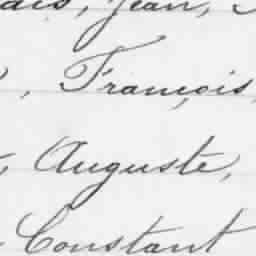 Jean,
, François,
Auguste,
Constant